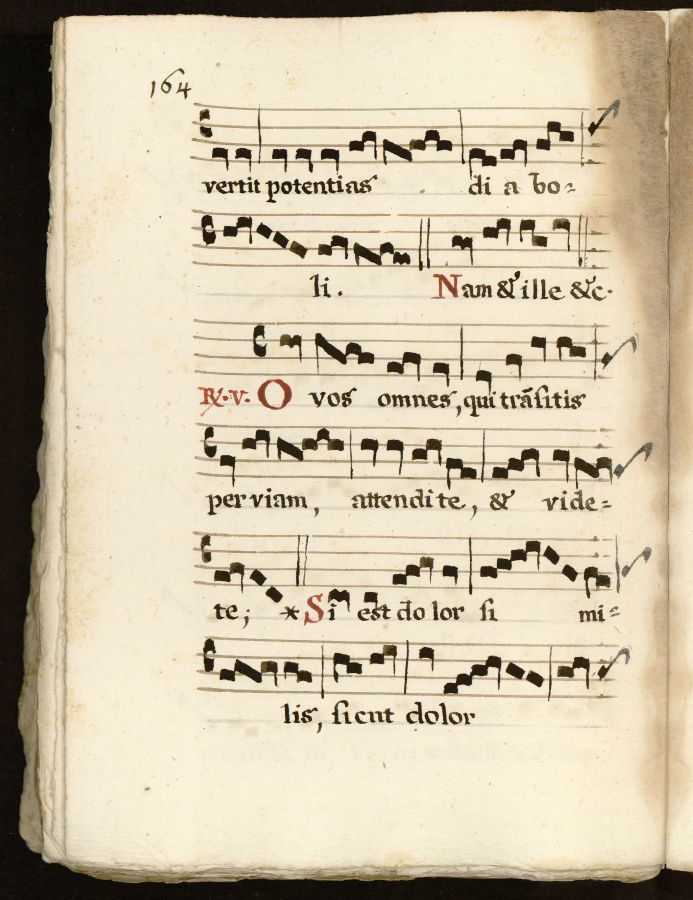 164
vertit potentias di a bo=
li. Nam & ille &c.
℟.v. O vos omnes, qui trãsitis
per viam, attendite, & vide=
te; * Si est dolor si mi=
lis, sicut dolor